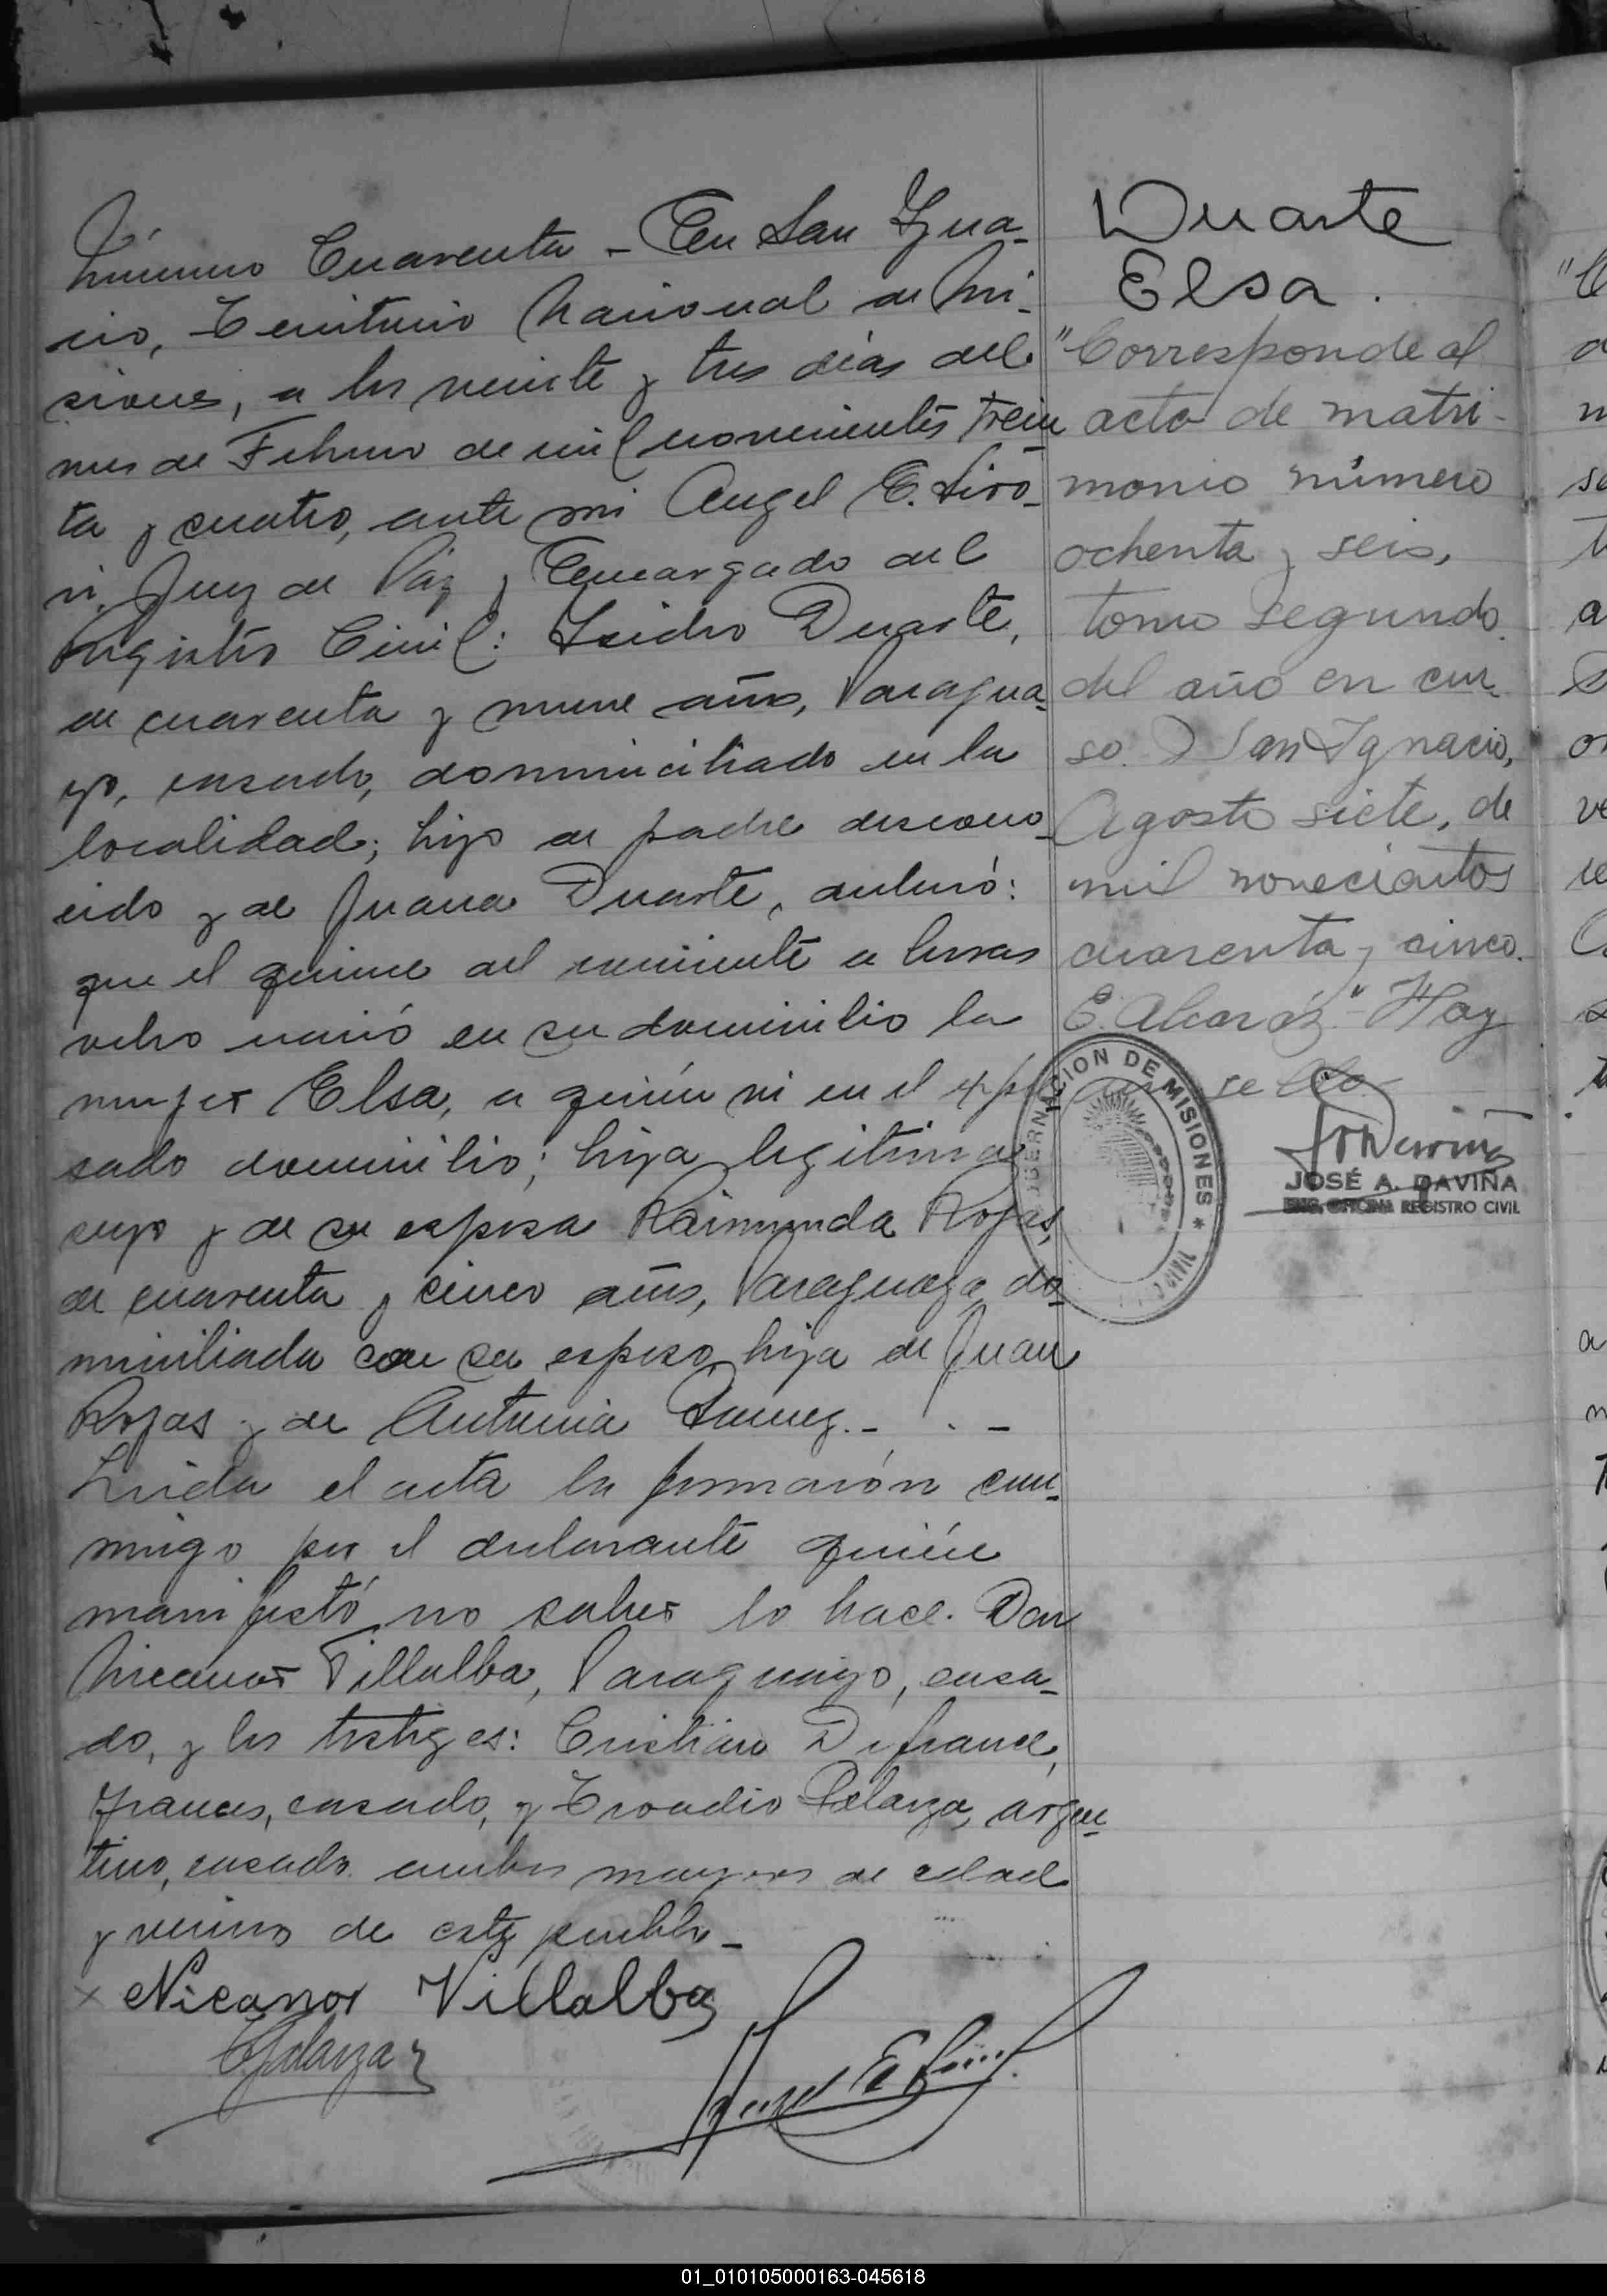 Número Cuarenta - En San Igna-
cio, Territorio Nacional de Mi-
siones, a los veinte y tres días del
mes de Febrero de mil novecientos trein
ta y cuatro, ante mi Angel E.
Juez de Paz y Encargado del
Registro Civil: Isidro Duarte,
de cuarenta y nueve años, Paragua-
yo, casado, dominiciliado en la
localidad; hijo de padre descono-
cido y de Juana Duarte, declaró:
que el quince del corriente a horas
ocho nació en su domicilio la
mujer Elsa, a quién vi en el expre
sado domicilio; hija legitima
suya y de su esposa Raimunda Rojas,
de cuarenta y cinco años, Paraguaya, do-
miciliada con su esposo, hija de Juan
Rojas y de Antonia
Leida el acta la firmarón con-
migo por el declarante quién
manifestó no saber lo hace. Don
Nicanor Villalba, Paraguayo, casa-
do, y los testigos: Cristian Difrance,
frances, casado, y Eroadio Galarza, argen-
tino, casado ambos mayores de edad
y vecinos de este pueblo -
x Nicanor Villalba
EGalarza
Angel E
Duarte
Elsa.
"Corresponde al
acta de matri-
monio número
ochenta y seis,
tomo segundo
del año en cur-
so. San Ignacio,
Agosto siete, de
mil novecientos
cuarenta y cinco.
E. Alcaráz." - Hay
un sello.
GOBERNACION DE MISIONES *
CIVIL
JOSÉ A. DAVIÑA
ENC. OFICINA REGISTRO CIVIL
01_010105000163-045618